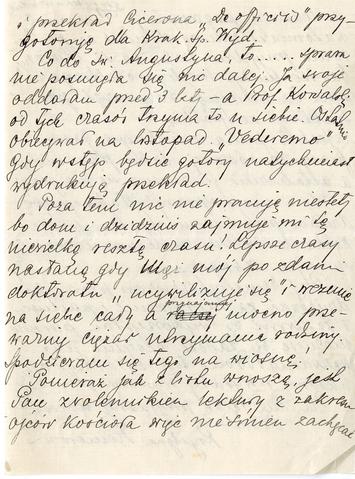 i przekład Cicerona „De officiis” przy-
gotowuję dla Krak. Sp. Wyd.
Co do św. Augustyna, to..... sprawa
nie posunęła się nic dalej. Ja swoje
oddałam przed 3 laty – a Prof. Kowalski
od tych czasów trzyma to u siebie. Ostatnio
obiecywał na listopad. „Vederemo”
gdy wstęp będzie gotowy natychmiast
wydrukują przekład.
Poza tem nic nie pracuję niestety
bo dom i dzidziuś zajmuje mi tę
niewielką resztę czasu. Lepsze czasy
nastaną gdy Mąż mój po zdaniu
doktoratu „ucywilizuje się” i weźmie
na siebie cały a raczej przynajmniej mocno prze-
ważny ciężar utrzymania rodziny.
Spodziewam się tego na wiosnę!
Ponieważ jak z listu wnoszę, jest
Pan zwolennikiem lektury z zakresu
ojców Kościoła więc nie śmiem zachęcać